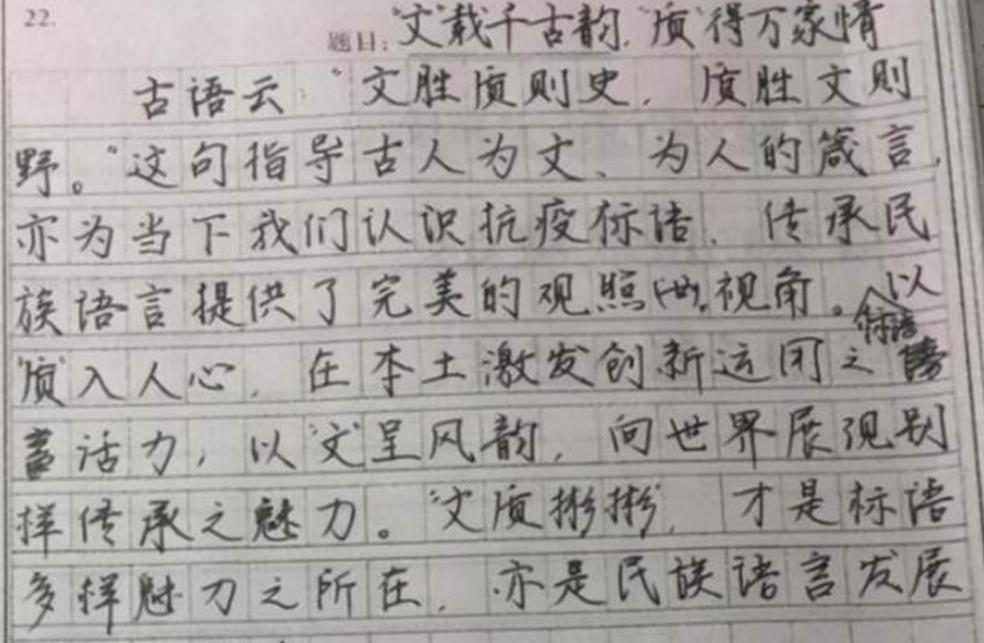 22.
题目:"文"载千古韵,"质"得万家情
古语云:"文胜质则史,质胜文则
野。"这句指导古人为文、为人的箴言,
亦为当下我们认识抗疫标语,传承民
族语言提供了完美的观照视角。以
"质"入人心,在本土激发创新运用之标语
活力,以"文"呈风韵,向世界展现别
样传承之魅力。"文质彬彬",才是标语
多样魅力之所在,亦是民族语言发展